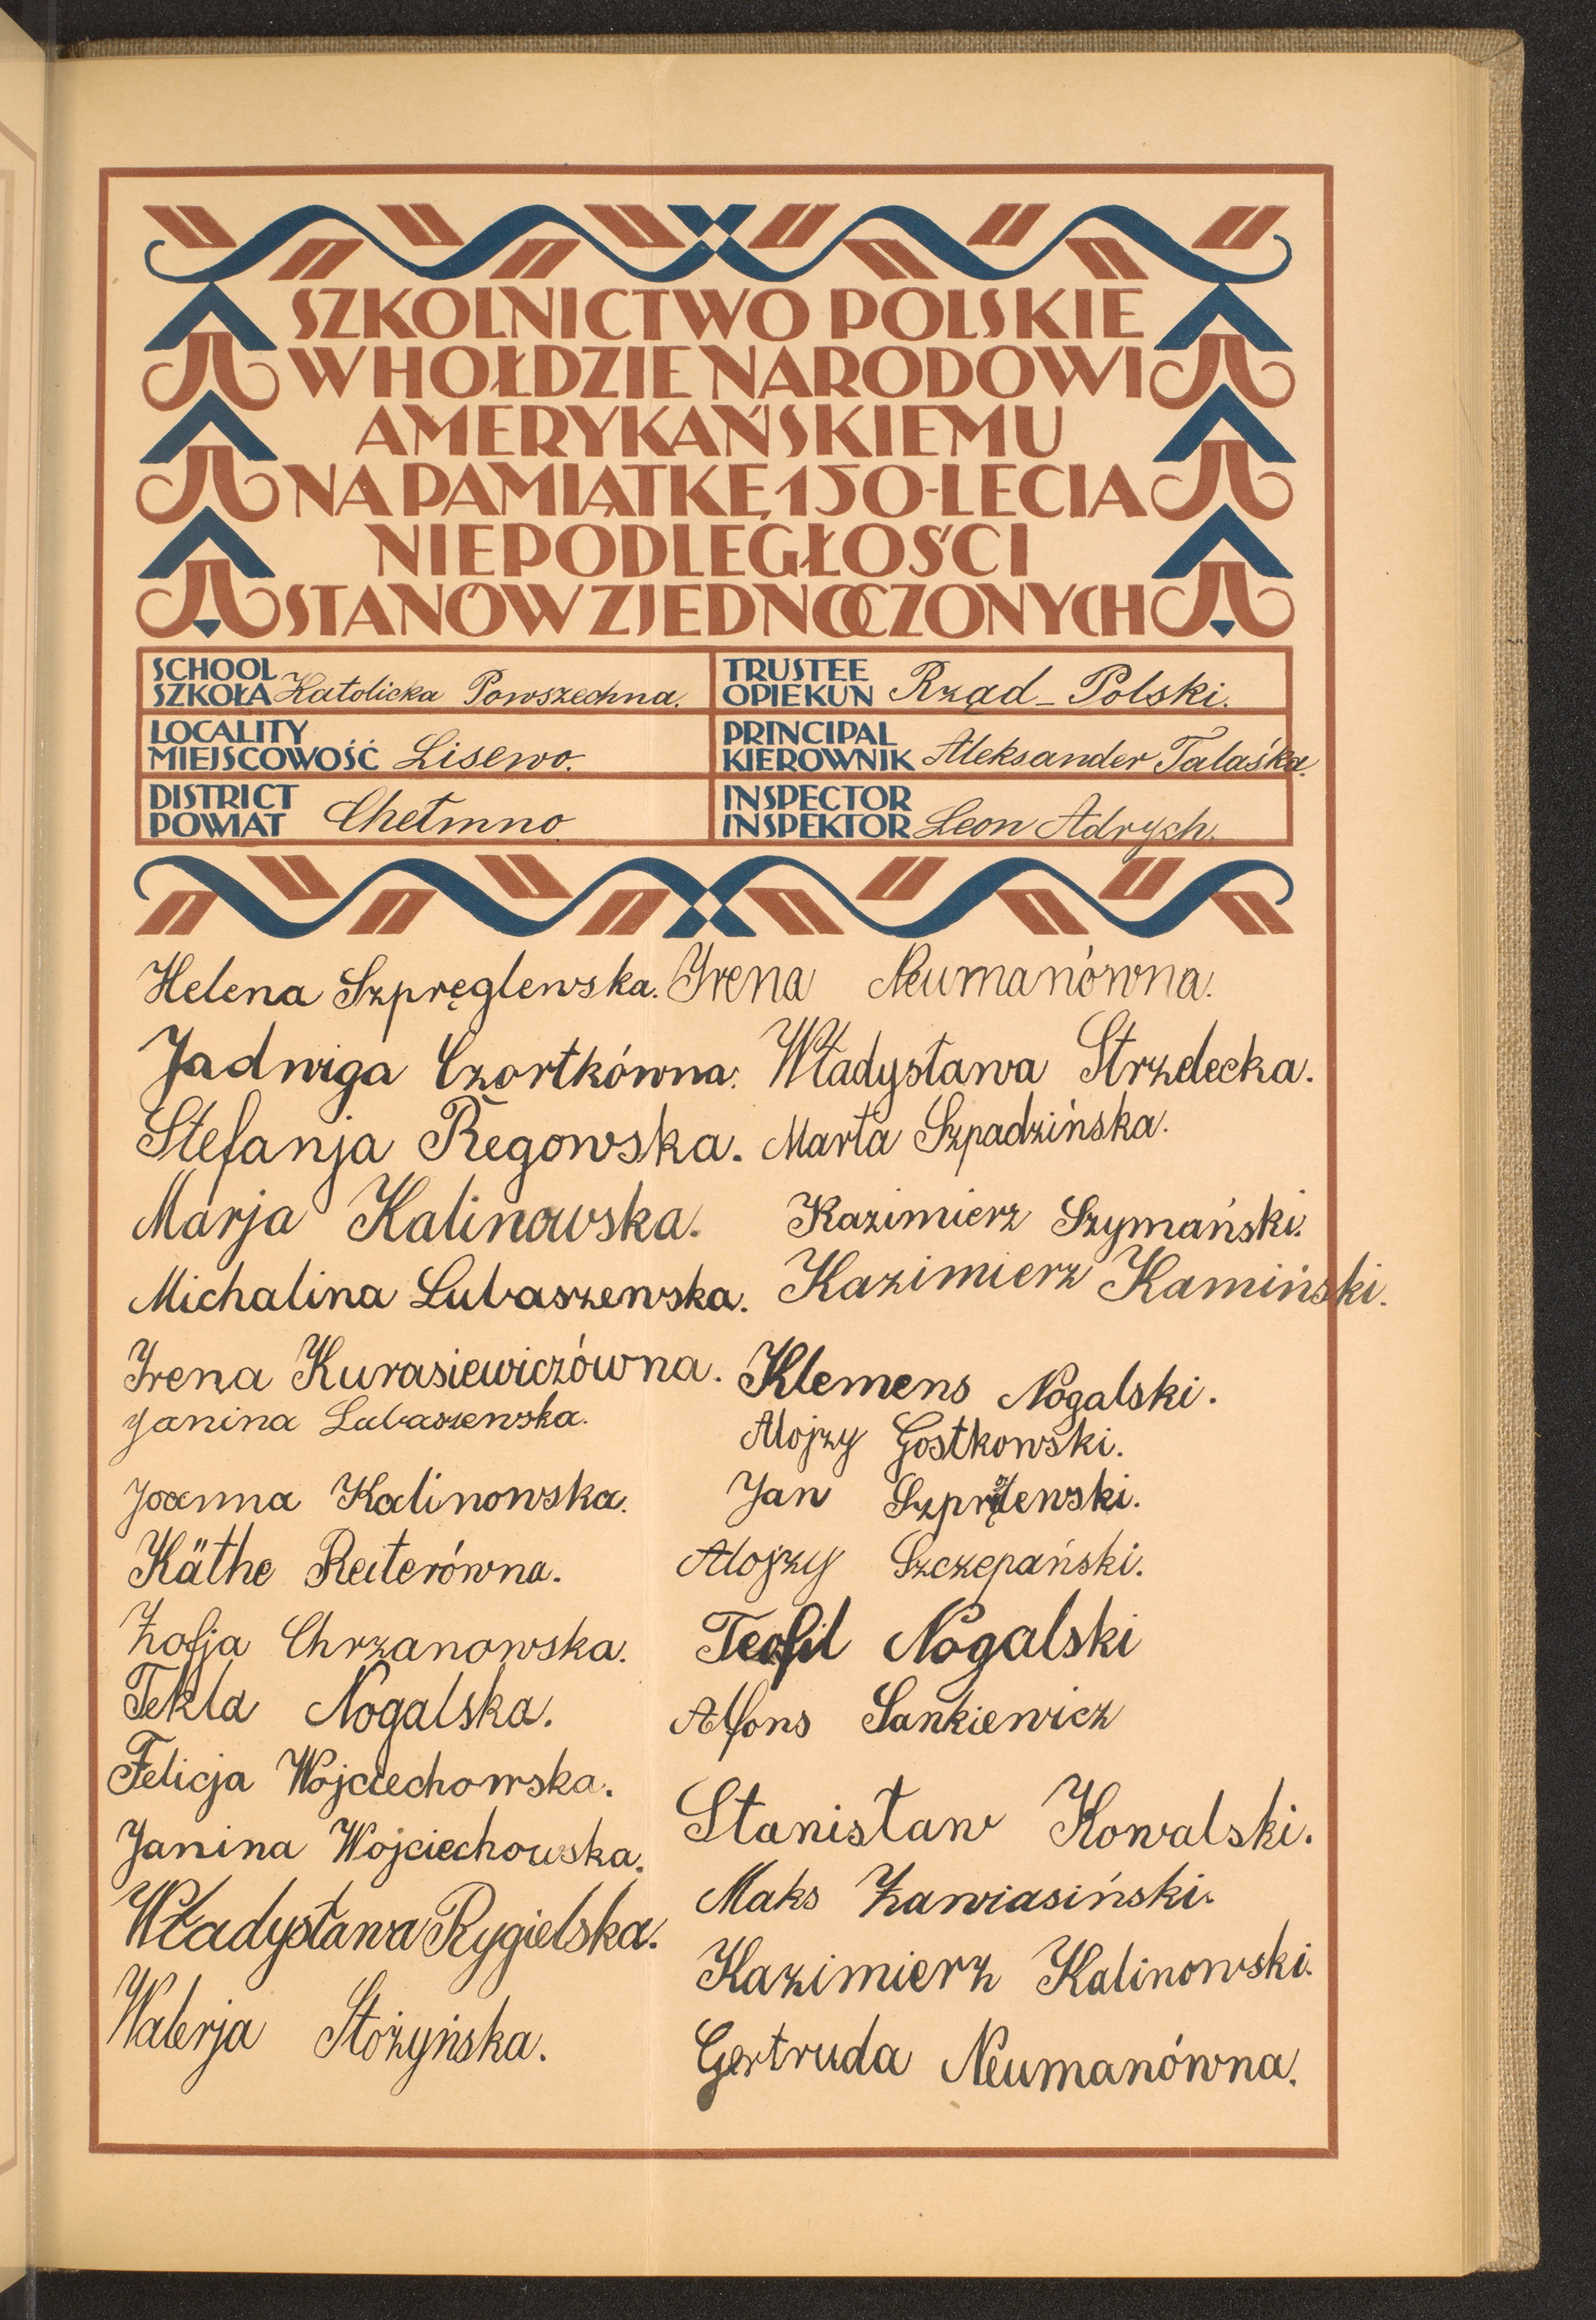 SZKOLNICTWO POLSKIE
W HOŁDZIE NARODOWI
AMERYKAŃSKIEMU
NA PAMIĄTKĘ 150-LECIA
NIEPODLEGŁOŚCI
STANÓW ZJEDNOCZONYCH
SCHOOL
SZKOŁA Katolicka Powszechna.
TRUSTEE
OPIEKUN Rząd - Polski.
LOCALITY
MIEJSCOWOŚĆ Lisewo.
PRINCIPAL
KIEROWNIK Aleksander Talaśka.
DISTRICT
POWIAT Chełmno
INSPECTOR
INSPEKTOR Leon Adrych.
Helena Szpręglewska. Irena Neumanówna.
Jadwiga Czortkówna. Władysława Strzelecka.
StefanjaRęgowska. Marta Szpadzińska.
Marja Kalinowska. Kazimierz Szymański.
Michalina Lubaszewska. Kazimierz Kamiński.
Irena Kurasiewiczówna. Klemens Nogalski.
Janina Lubaszewska. Alojzy Gostkowski.
Joanna Kalinowska. Jan
Käthe Reiterówna. Alojzy Szczepański.
Zofja Chrzanowska. Teofil Nogalski
Tekla Nogalska. Alfons Sankiewicz
Felicja Wojciechowska.
Stanisław Kowalski.
Janina Wojciechowska.
Maks Zawiasiński.
Władysława Rygielska.
Kazimierz Kalinowski.
Walerja Stożyńska.
Gertruda Neumanówna.